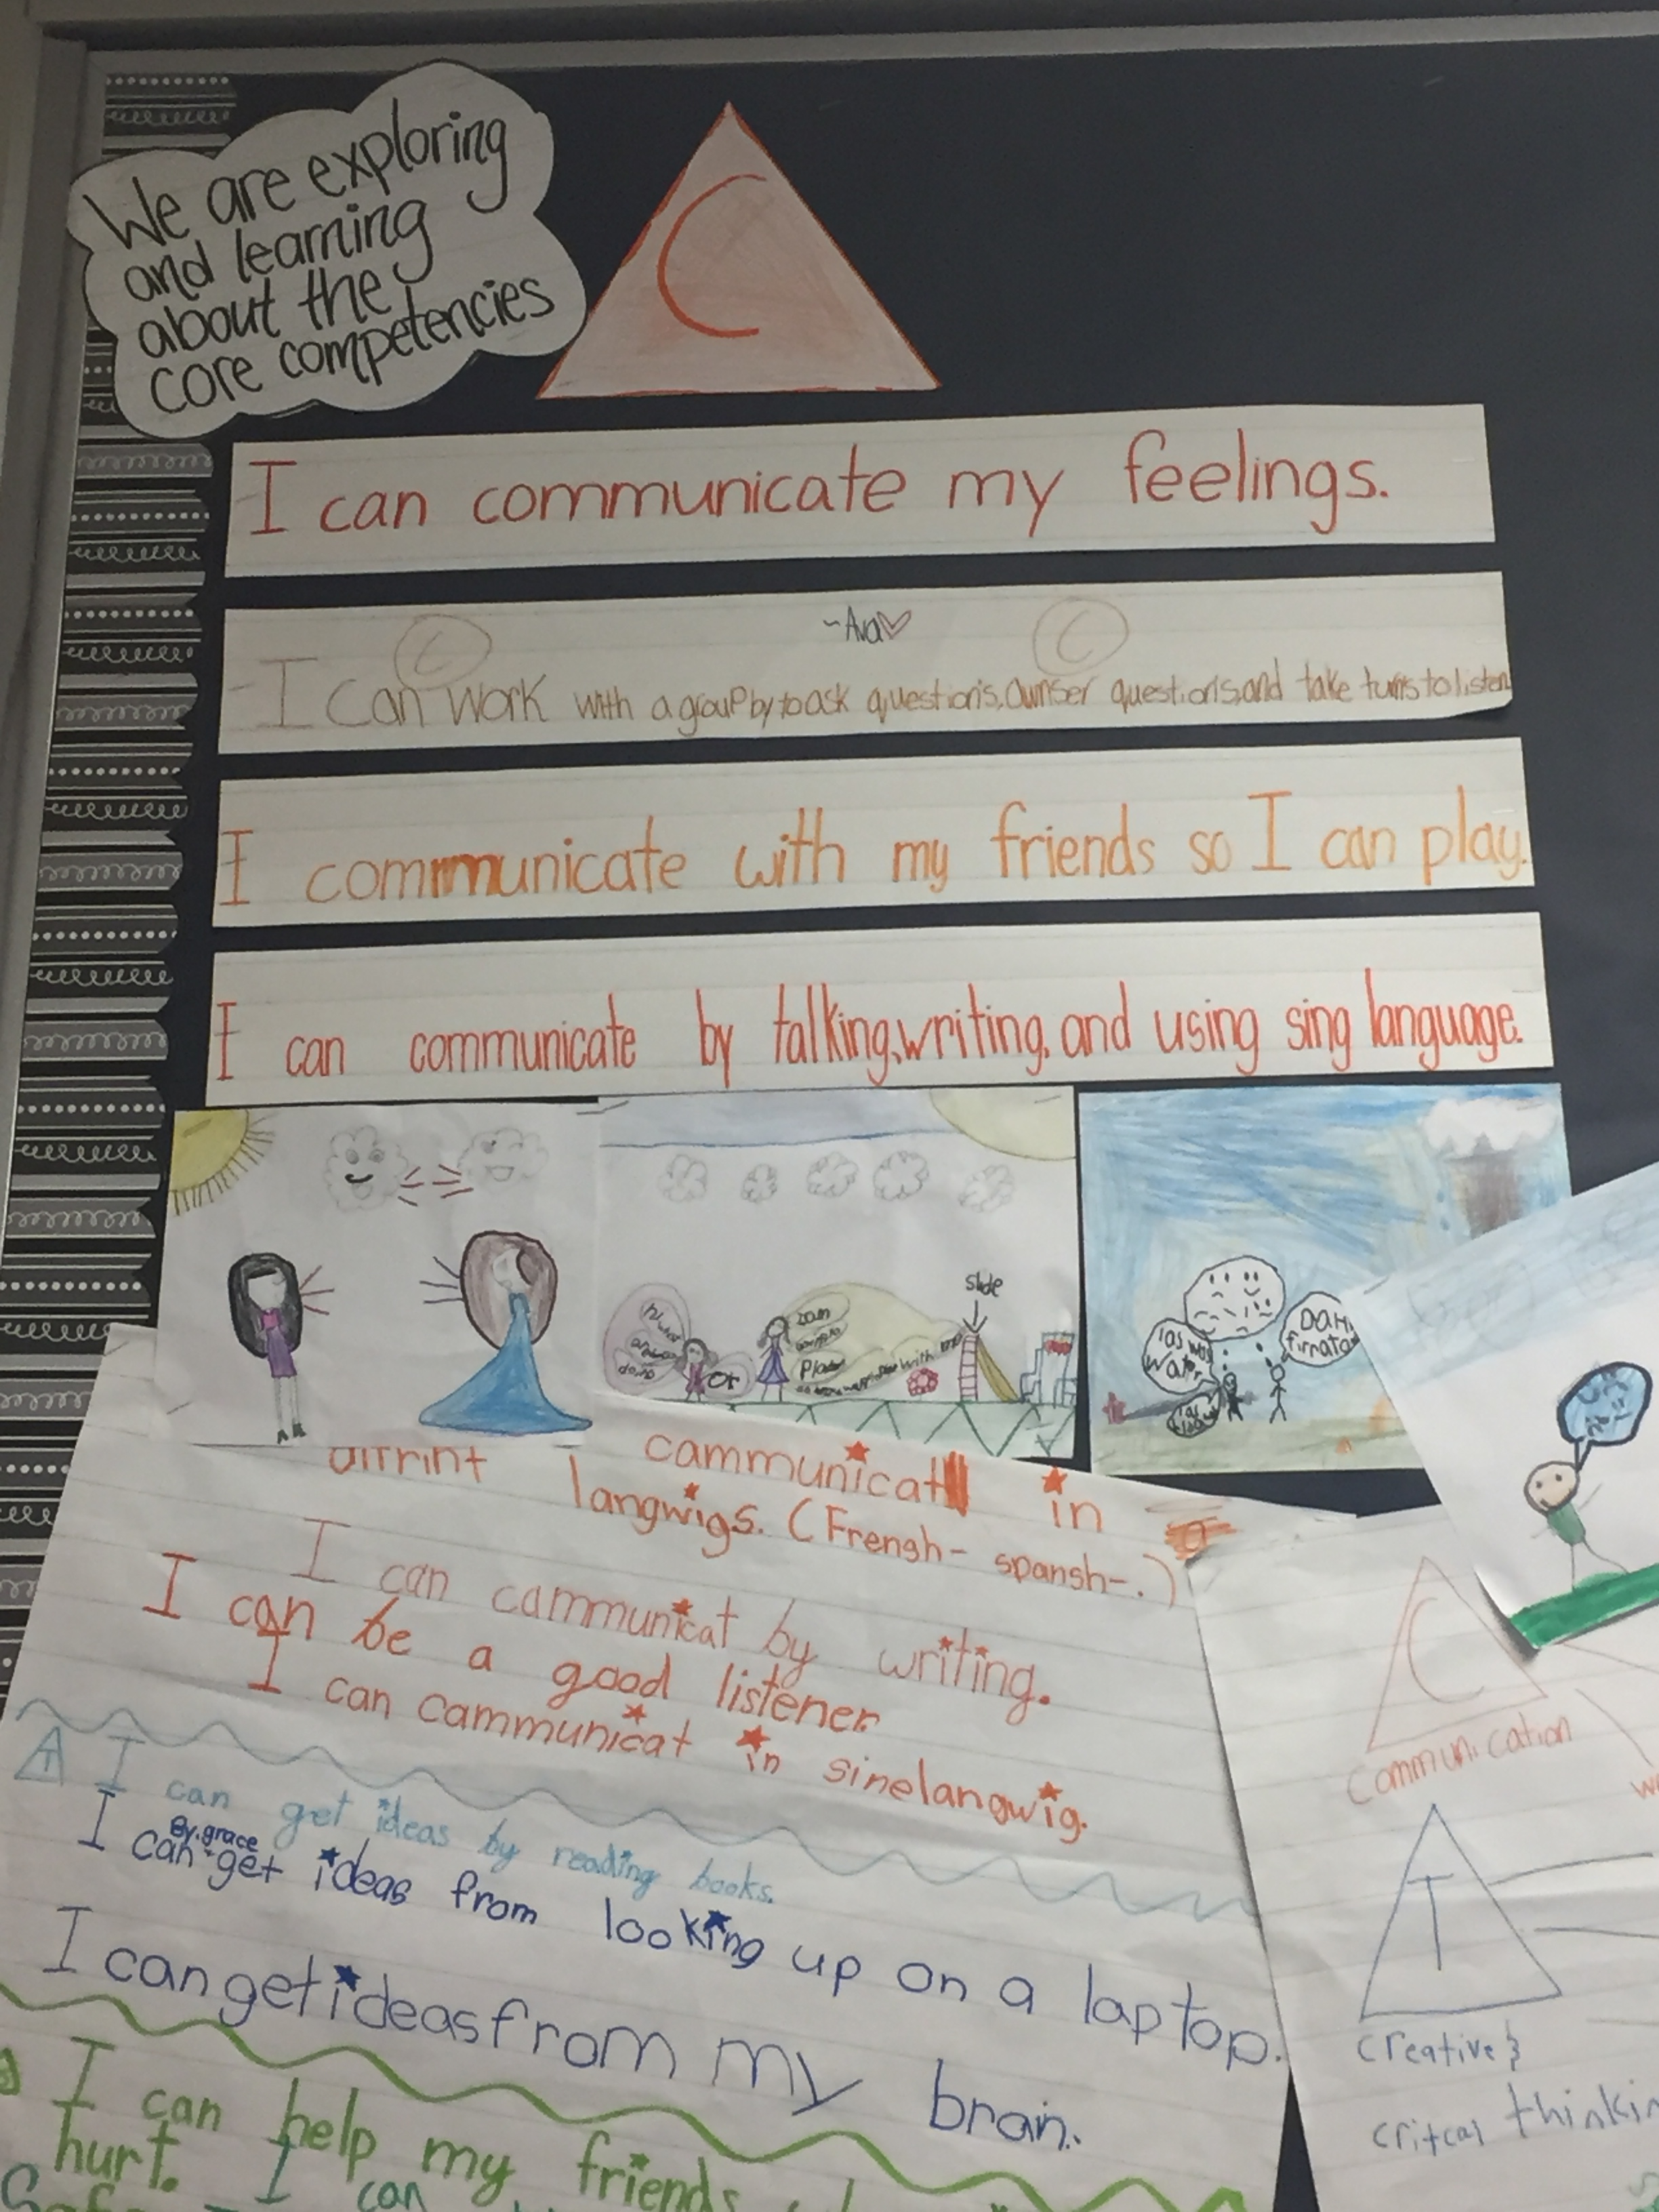 We are exploring
and learning
about the
core competencies
C
I can communicate my feelings.
~Ava♡
C C
I can work with a group by to ask questions, awnser questions, and take turns to listen
I communicate with my friends so I can play.
I can communicate by talking, writing, and using sing language.
slide
or
can
Play
with
las
communicat in
ditrint langwigs. (Frengh- spansh-.)
I can cammunicat by writing.
I can be a good listener.
I can cammunicat in sinelangwig.
I can get ideas by reading books.
By. grace
I can get ideas from looking up on a laptop.
I can get ideas from my bran.
I can help my friends
hurt. I can
C
Communication
T
Creative &
Critcal thinkin